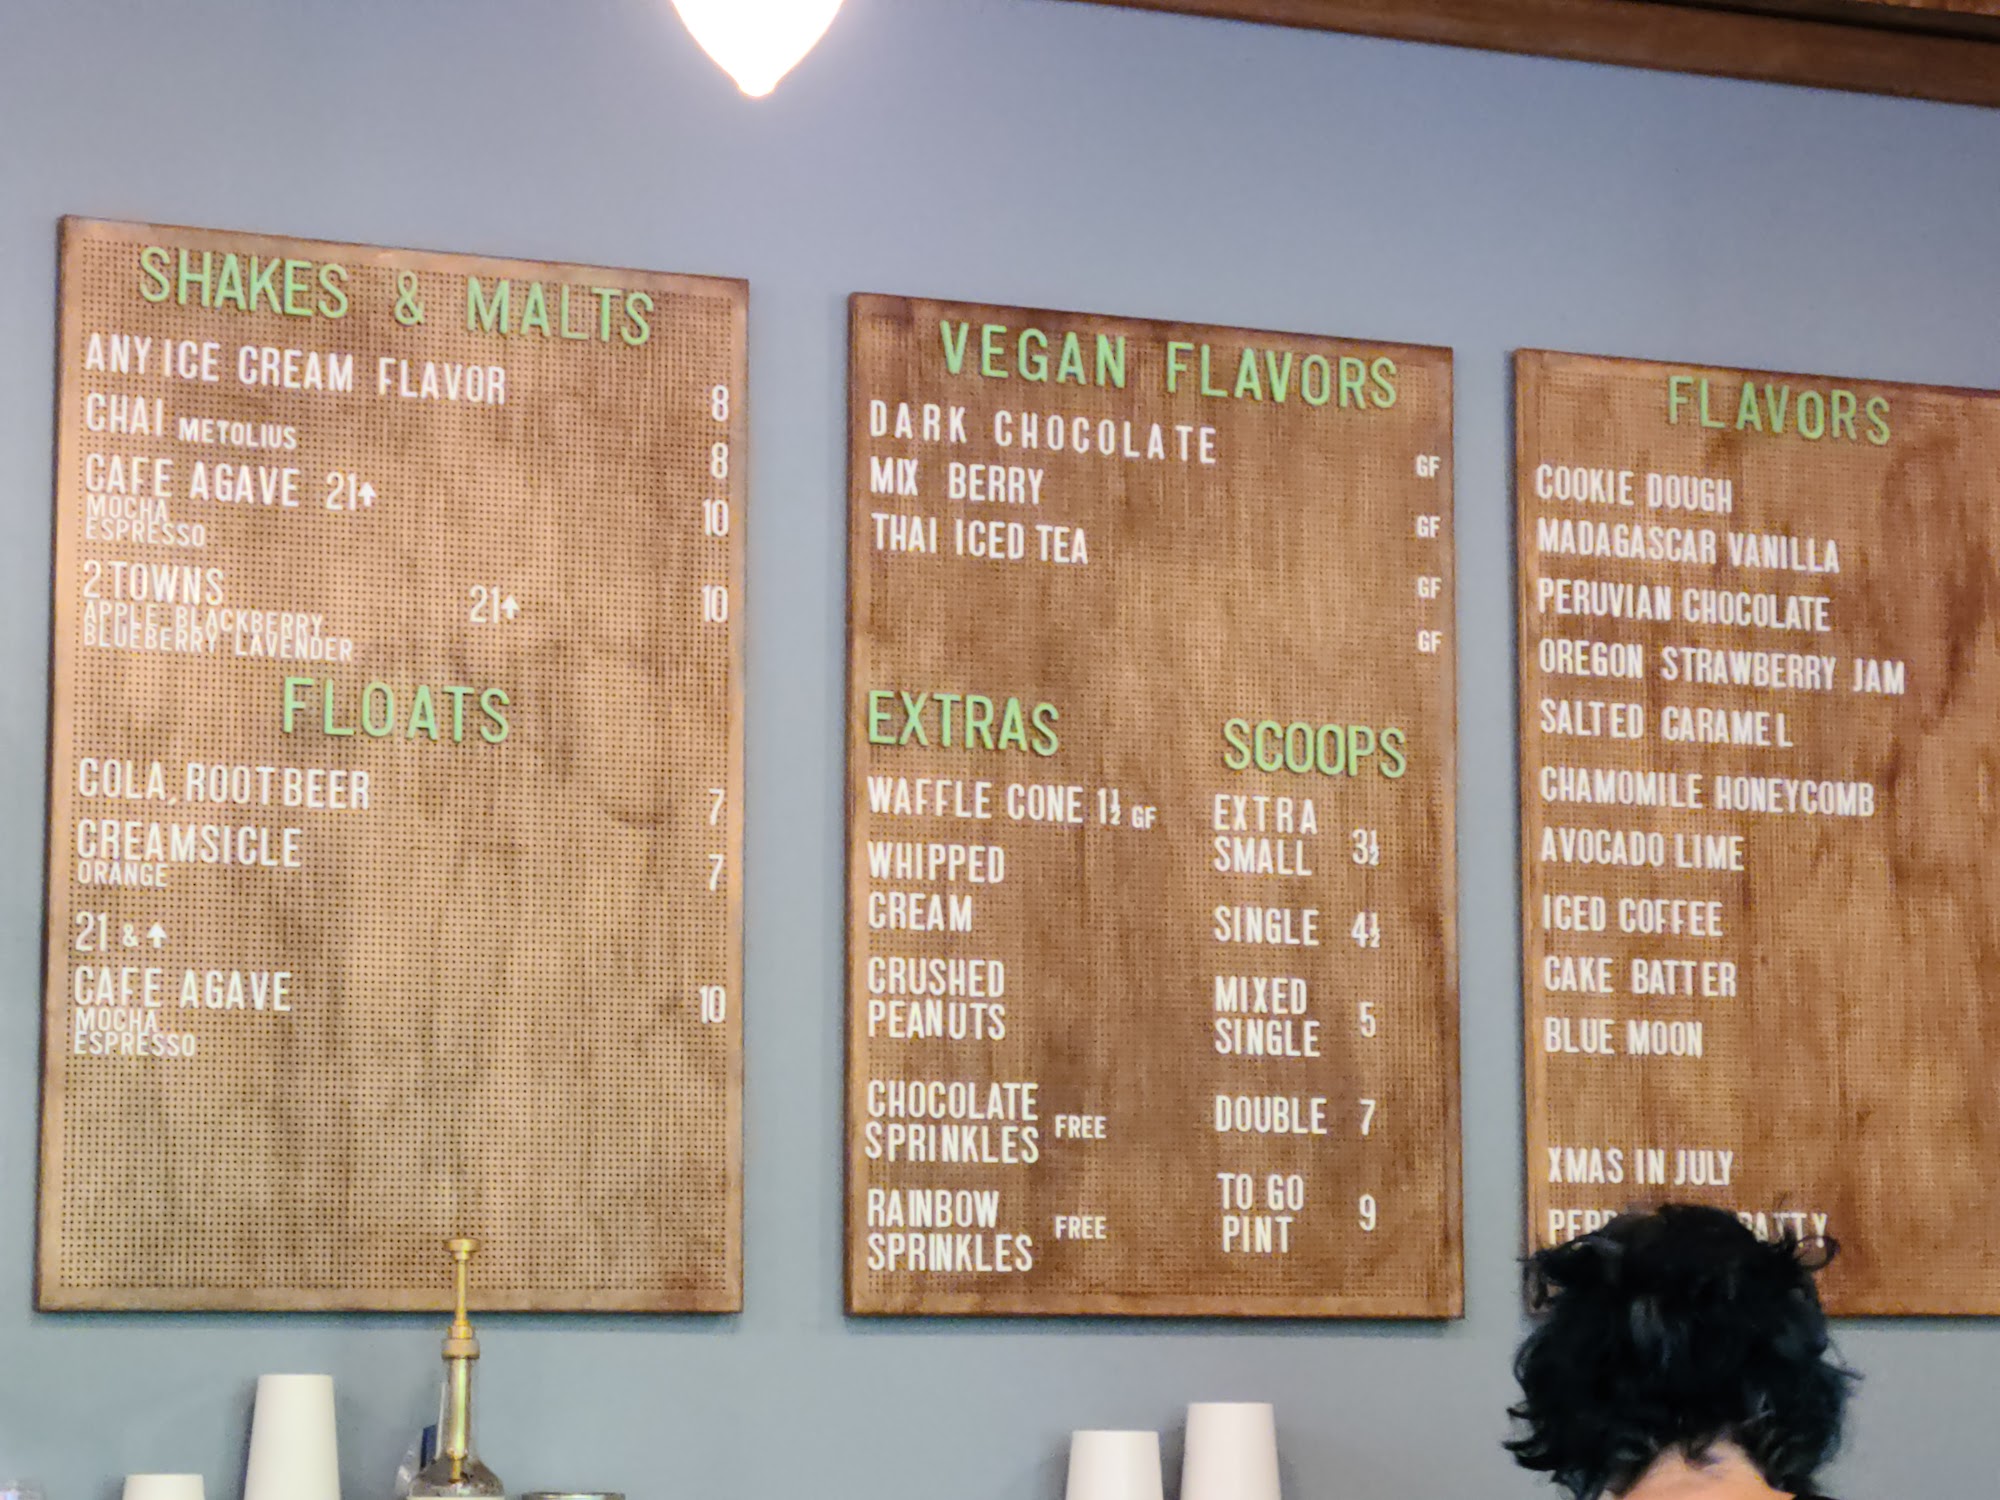 SHAKES & MALTS
ANY ICE CREAM FLAVOR 8
CHAI METOLIUS 8
CAFE AGAVE 21↑ 10
MOCHA
ESPRESSO
2 TOWNS 21↑ 10
APPLE BLACKBERRY
BLUEBERRY LAVENDER
FLOATS
COLA, ROOTBEER 7
CREAMSICLE 7
ORANGE
21 & ↑
CAFE AGAVE 10
MOCHA
ESPRESSO
VEGAN FLAVORS
DARK CHOCOLATE GF
MIX BERRY GF
THAI ICED TEA GF
GF
EXTRAS
WAFFLE CONE 1½ GF
WHIPPED
CREAM
CRUSHED
PEANUTS
CHOCOLATE
SPRINKLES FREE
RAINBOW
SPRINKLES FREE
SCOOPS
EXTRA
SMALL 3½
SINGLE 4½
MIXED
SINGLE 5
DOUBLE 7
TO GO
PINT 9
FLAVORS
COOKIE DOUGH
MADAGASCAR VANILLA
PERUVIAN CHOCOLATE
OREGON STRAWBERRY JAM
SALTED CARAMEL
CHAMOMILE HONEYCOMB
AVOCADO LIME
ICED COFFEE
CAKE BATTER
BLUE MOON
XMAS IN JULY